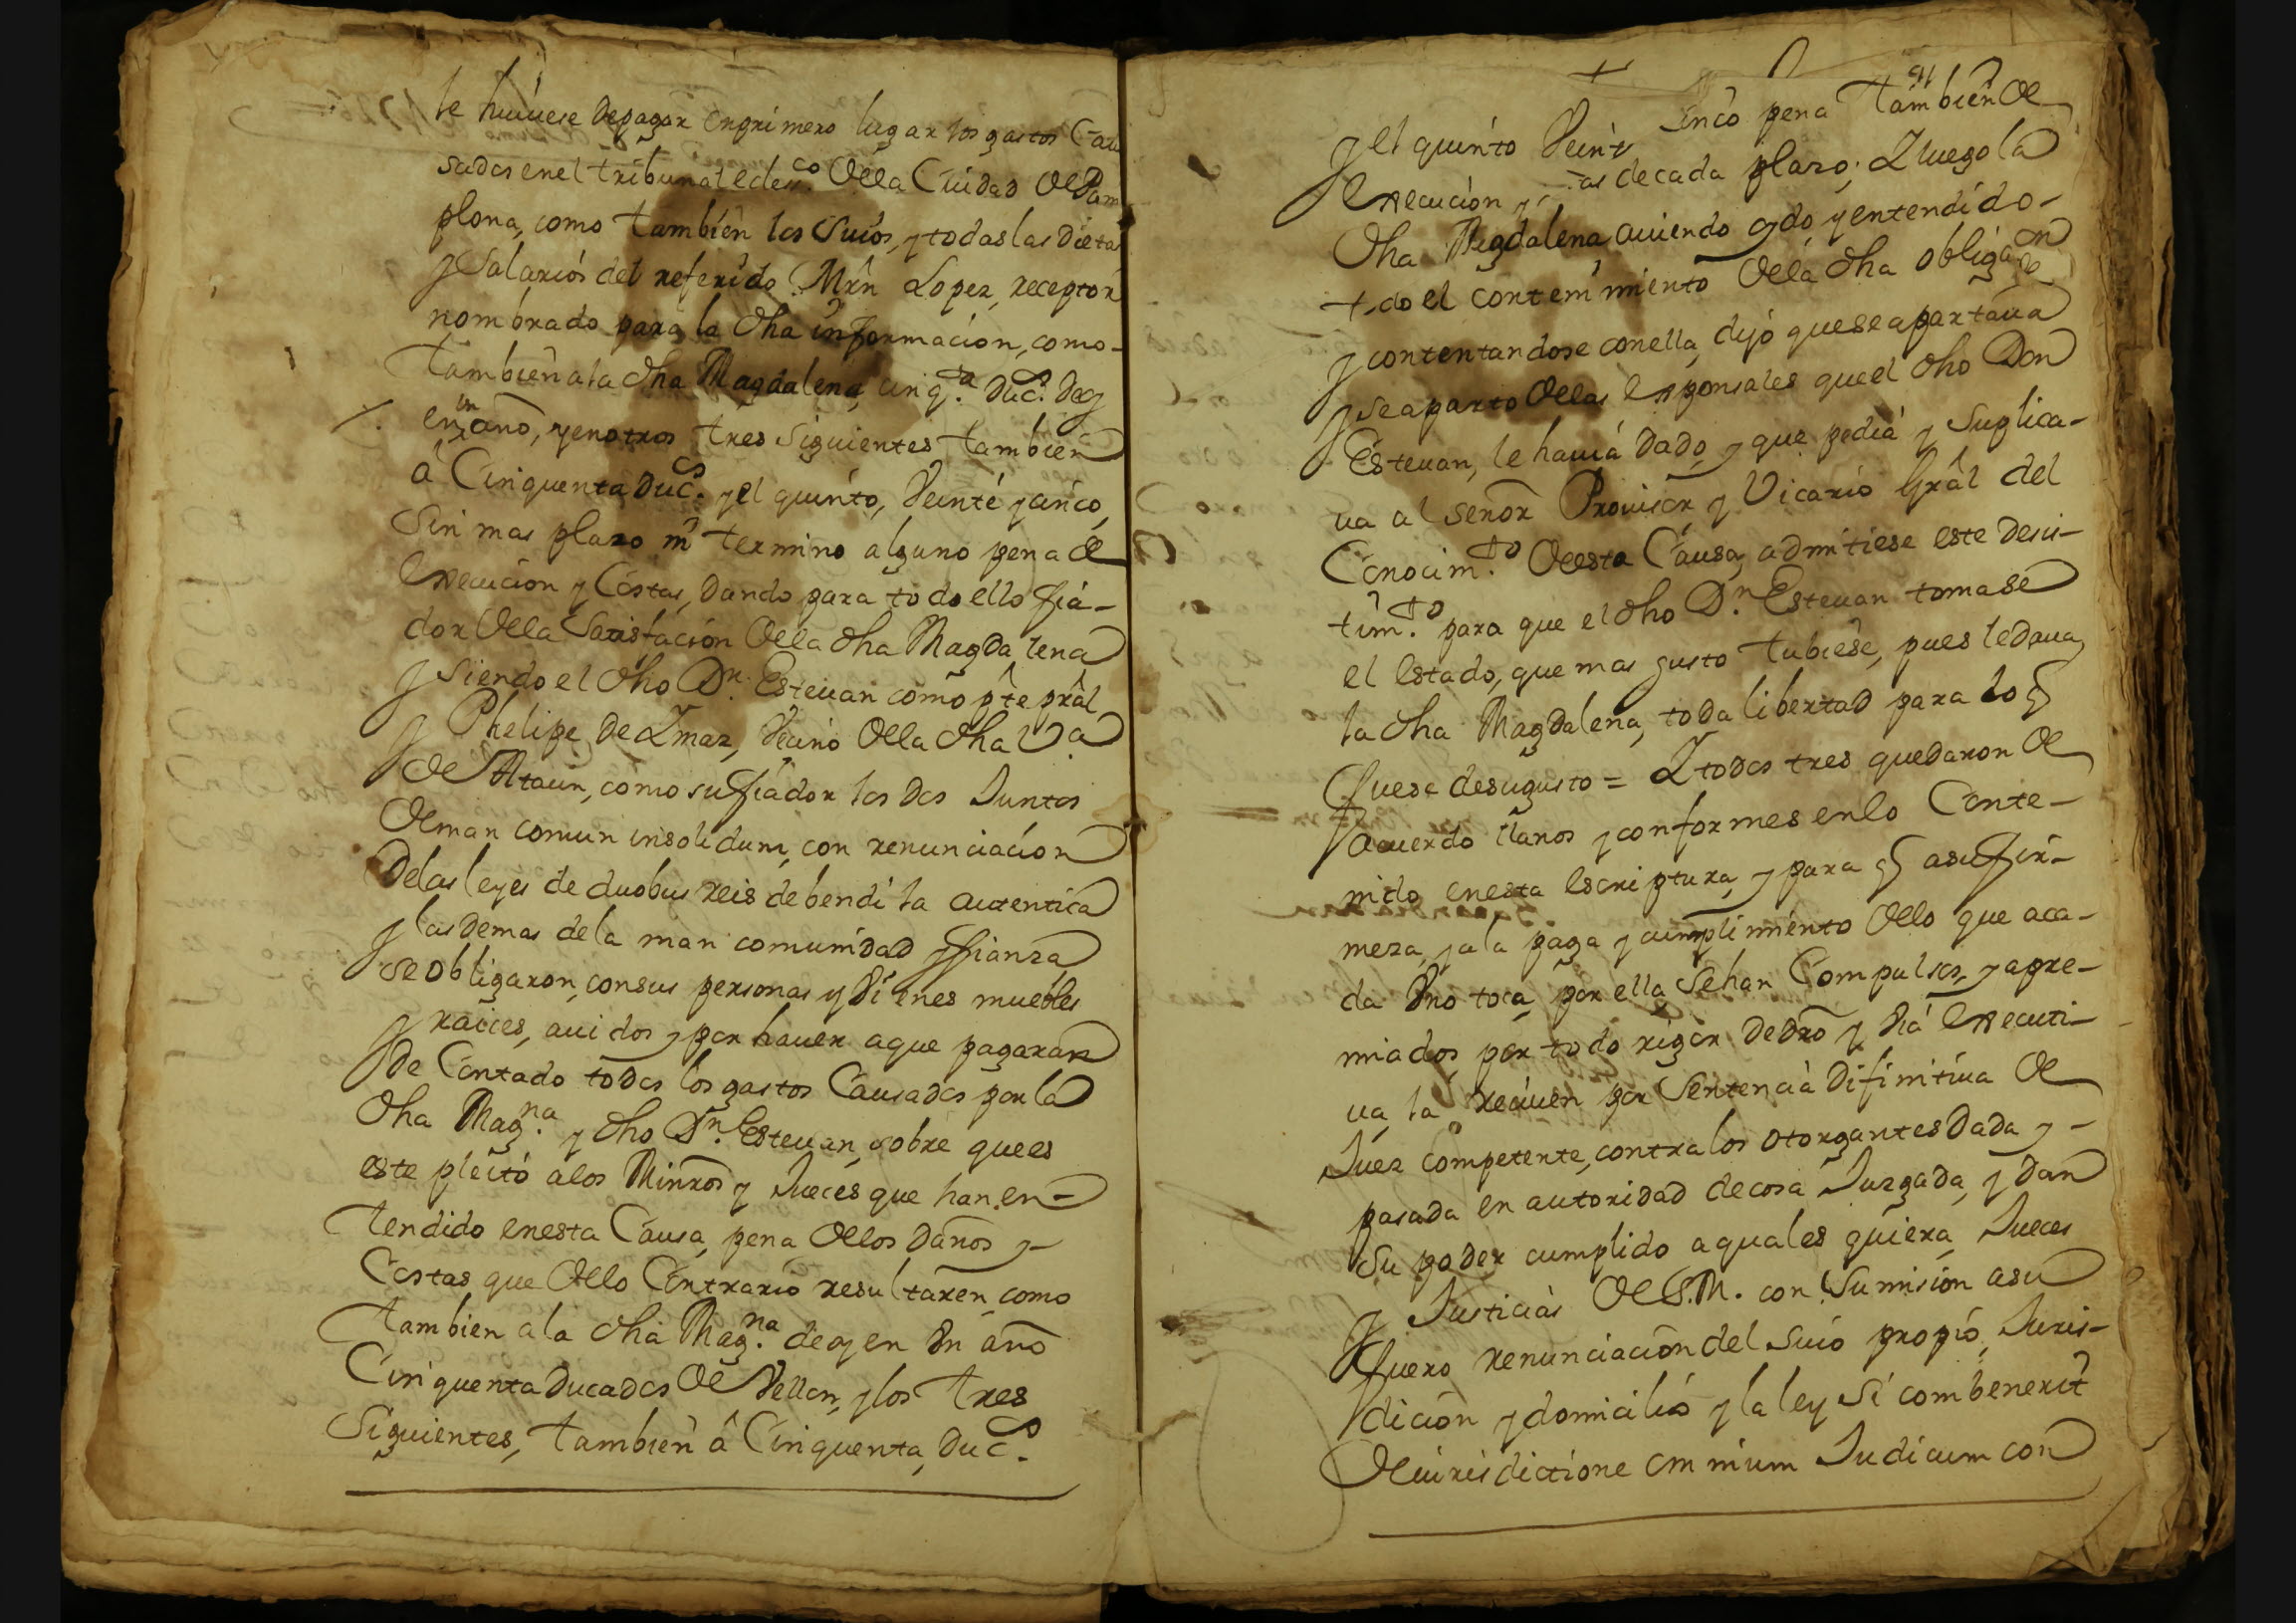 le huuiese de pagar en primero lugar los gastos Cau
sados en el tribunal ecles.co de la Ciudad de Pam
plona, como tambien los Suios, y todas las dietas
y Salarios del referido Mrn Lopez, receptor
nombrado para la dha informacion, como-
tambien a la dha Magdalena cinq.ta duc.s de oy
en un año, y en otros tres siguientes tambien
â Cinquenta duc.s y el quinto, Veinte y cinco,
Sin mas plazo ni termino alguno pena de
execucion y Costas, dando para todo ello fia-
dor de la Satisfacion de la dha Magdalena
y Siendo el dho Dn. Esteuan como pte pral
y Phelipe de Ymaz, Vecino de la dha Va
de Ataun, como su fiador los dos Juntos
de man comun insolidum, con renunciacion
de las leyes de duobus reis debendi la autentica
y las demas de la man comunidad y fianza
se obligaron, con sus personas y Vienes muebles
y raices, auidos y por hauer a que pagaran
de Contado todos los gastos Causados por la
dha Mag.na y dho Dn. Esteuan, sobre que es
este pleito a los Minros y Jueces que han en-
tendido en esta Causa, pena de los daños y-
Costas que de lo Contrario resultaren, como
tambien a la dha Mag.na de oy en Vn año
Cinquenta ducados de Vellon, y los tres
Siguientes, tambien â Cinquenta, duc.s
y el quinto Veinty Sinco pena tambien de
execucion y as de cada plazo; Y luego la
dha Magdalena auiendo oydo y entendido-
todo el contenimiento de la dha obligaon
y contentandose con ella, dijo que se apartaua
y se aparto de las esponsales que el dho Don
Esteuan, le hauia dado, y que pedia y Suplica-
ua al Señor Prouisor, y Vicario Gral del
Conocim.to de esta Causa, admitiese este desis-
tim.to para que el dho Dn. Esteuan tomase
el estado, que mas gusto tubiese, pues le daua
la dha Magdalena, toda libertad para lo q
fuese de su gusto = Y todos tres quedaron de
acuerdo llanos y conformes en lo Conte-
nido en esta escriptura, y para q a su fir-
meza, y a la paga y cumplimiento de lo que a ca-
da Vno toca, por ella Sehan Compulsos, y apre-
miados, por todo rigor de dro y Via executi-
ua, la reciuen por Sentencia difinitiua de
Juez competente, contra los otorgantes dada y-
pasada en autoridad de cosa Juzgada, y dan
su poder cumplido a quales quiera, Jueces
y Justicias de S.M. con Sumision a su
fuero renunciacion del Suio propio, Juris-
dicion y domicilio y la ley Si combenerit
de iurisdictione omnium Judicum con